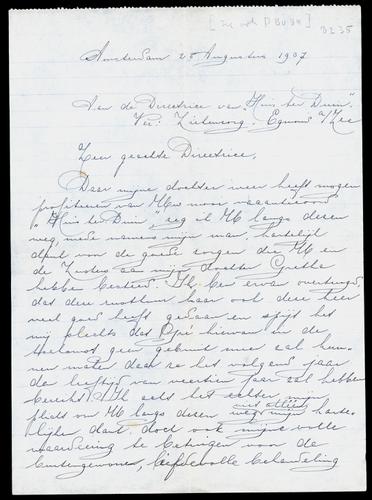 [zie ook DBUBH]
B235
Amsterdam 25 Augustus 1907
Aan de Directrice van "Huis ter Duin".
Ver: Ziekenzorg. Egmond a/Zee
Zeer geachte Directrice,
Daar mijne dochter weer heeft mogen
profiteren van Uw mooi vacantieoord
"Huis ter Duin" zeg ik U langs dezen
weg, mede namens mijn man, hartelijk
dank voor de goede zorgen die U en
de Zusters aan mijn dochter Greetha
hebben besteed. Ik ben ervan overtuigd,
dat deze rusttijd haar ook deze keer
veel goed heeft gedaan en spijt het
mij slechts dat zij hiervan in de
toekomst geen gebruik meer zal kun-
nen maken daar ze het volgend jaar
de leeftijd van veertien jaar zal hebben
bereikt. Ik stel het echter op
prijs om U langs dezen weg niet alleen mijn harte-
lijken dank doch ook mijne volle
waardeering te betuigen voor de
buitengewone, liefdevolle behandeling